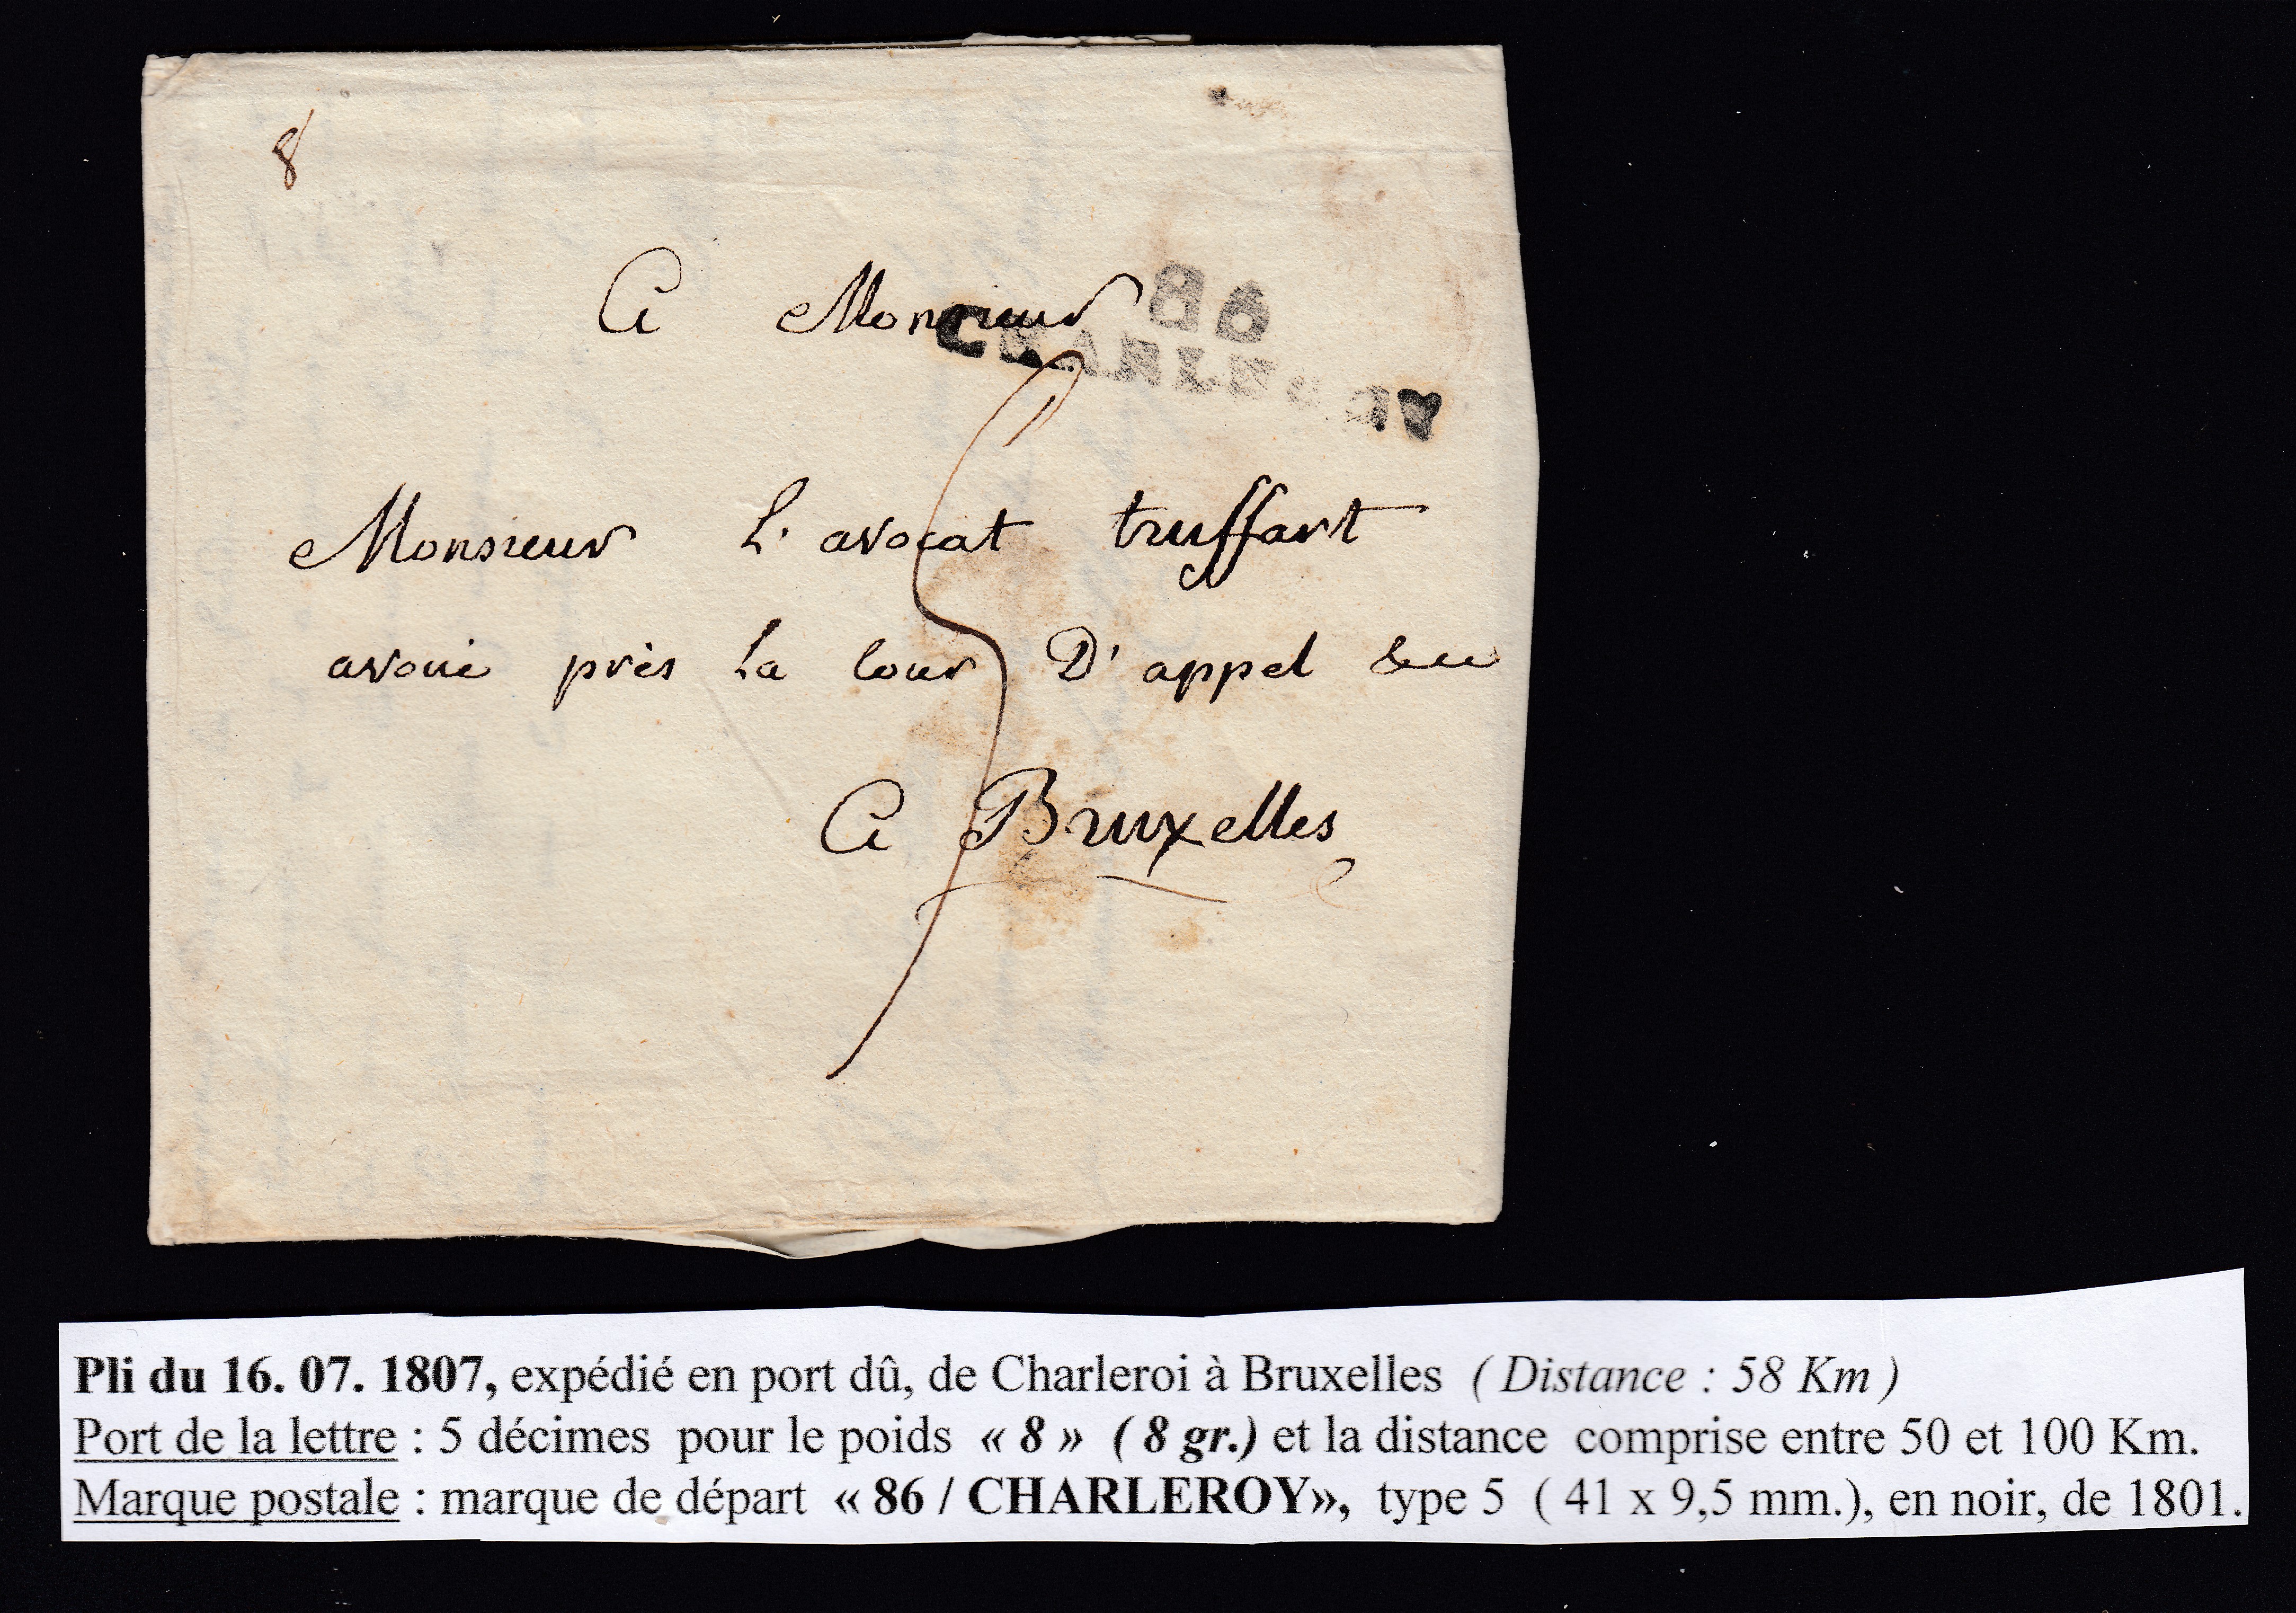 8
A Monsieur
86
CHARLEROY
5
Monsieur L'avocat truffart
avoué près La Cour D'appel &
A Bruxelles
Pli du 16. 07. 1807, expédié en port dû, de Charleroi à Bruxelles ( Distance : 58 Km )
Port de la lettre : 5 décimes pour le poids « 8 » ( 8 gr.) et la distance comprise entre 50 et 100 Km.
Marque postale : marque de départ « 86 / CHARLEROY», type 5 ( 41 x 9,5 mm.), en noir, de 1801.